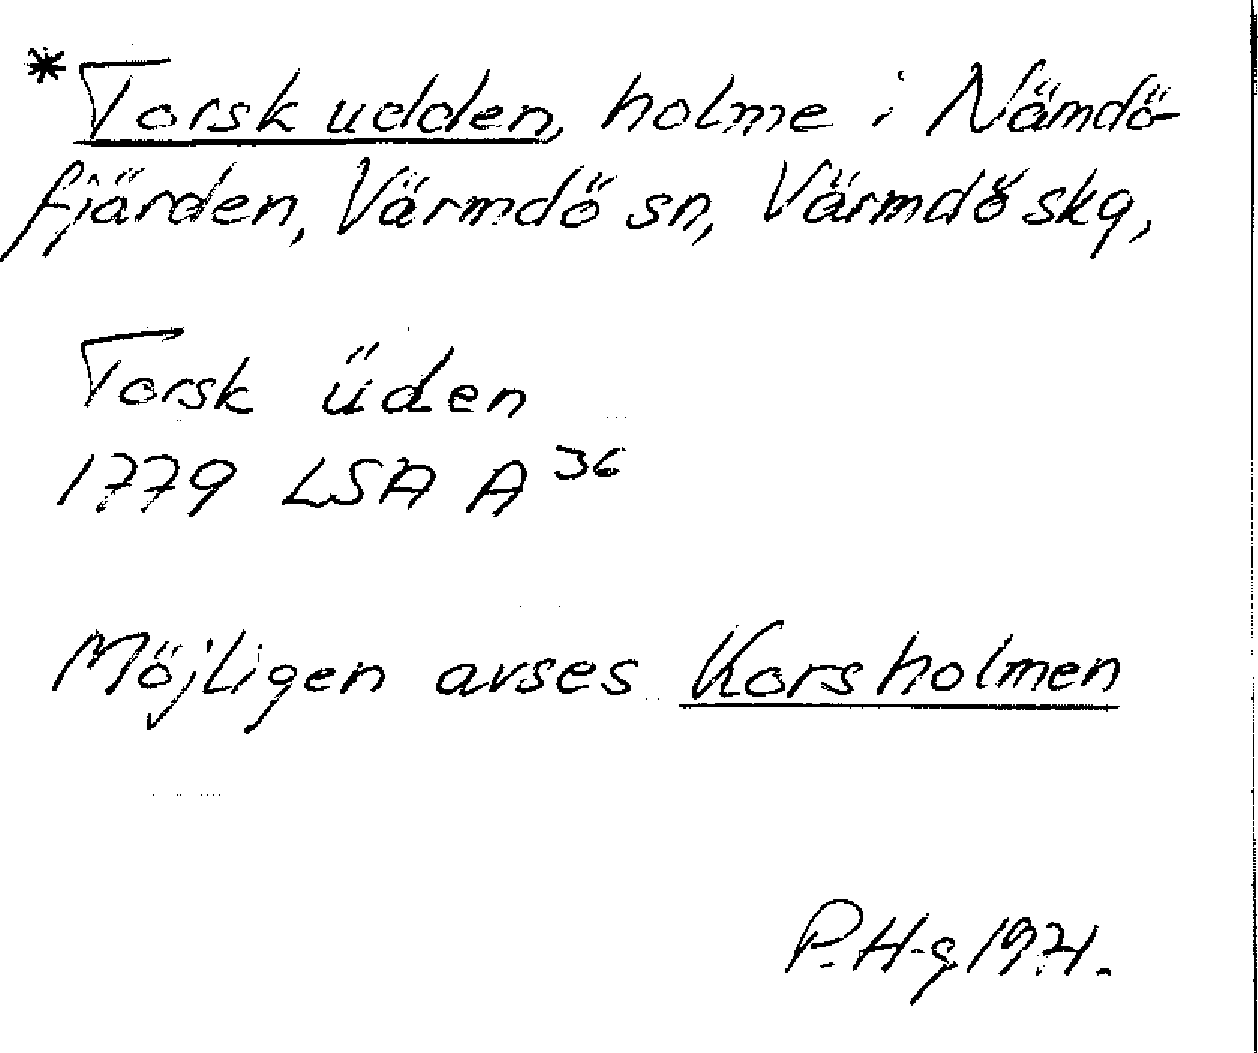 *Torskudden, holme i Nämdö-
fjärden, Värmdö sn, Värmdö skg,
Torsk üden
1779 LSA A 36
Möjligen avses Korsholmen
P. H-g 1971.